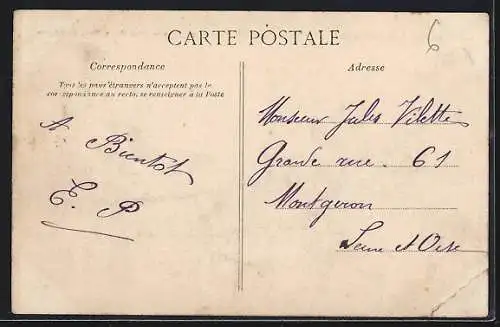 CARTE POSTALE
6
Correspondance
Tous les pays étrangers n'acceptent pas la
correspondance au recto, se renseigner à la Poste
A Bientot
E. P
Adresse
Monsieur Jules Vilette
Grande rue. 61
Montgeron
Seine et Oise